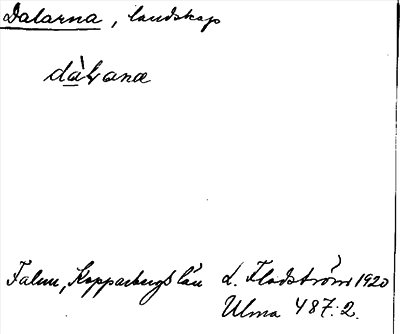 Dalarna, landskap
dàɫana
Falun, Kopparbergs län L. Flodström 1920
Ulma 487:2.